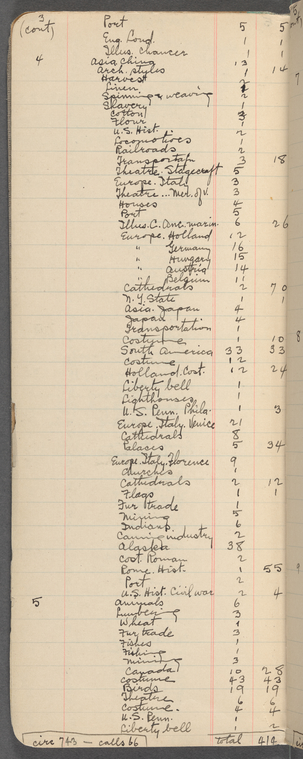 3 (cont) Port 5 5
Eng. Lond. 1
Illus. Chaucer 1 1
4 Asia, China 13
Arch. styles 1 14
Harvest 1
Linen
Spinning & weaving 2
Slavery 1
Cotton 3
Flour 1
U.S. Hist. 2
Locomotives 1
Railroads 2
Transportat'n 3 18
Theatre. Stagecraft 5
Europe. Italy 3
Theatre... Mer. of V. 3
Houses 4
Port 5
Illus. C. Anc. Marin. 6 26
Europe. Holland 12
" Germany 16
" Hungary 15
" Austria 14
" Belgium 11
Cathedrals 2 70
N.Y. State 1 1
Asia. Japan 4
Japan 4
Transportation 1
Costume 1 10
South America 33 33
Costume 12
Holland. Cost. 12 24
Liberty bell 1
Lighthouses 1
U.S. Penn. Phila. 1 3
Europe, Italy. Venice 21
Cathedrals 8
Palaces 5 34
Europe. Italy. Florence 9
Churches 1
Cathedrals 2 12
Flags 1 1
Fur trade 1
Mining 5
Indians. 6
Canning industry 2
Alaska 38
Cost. Roman 2
Rome. Hist. 1 55
Port 2
U.S. Hist. Civil war 2 4
5 Animals 6
Lumbering 3
Wheat 1
Fur trade 3
Fishes 1
Fishing 1
Mining 3
Canada 10 28
Costume 43 43
Birds 19 19
Theatre 6 6
Costume. 4 4
U.S. Penn. 1
Liberty bell 1
circ 743 — calls 66 total 414